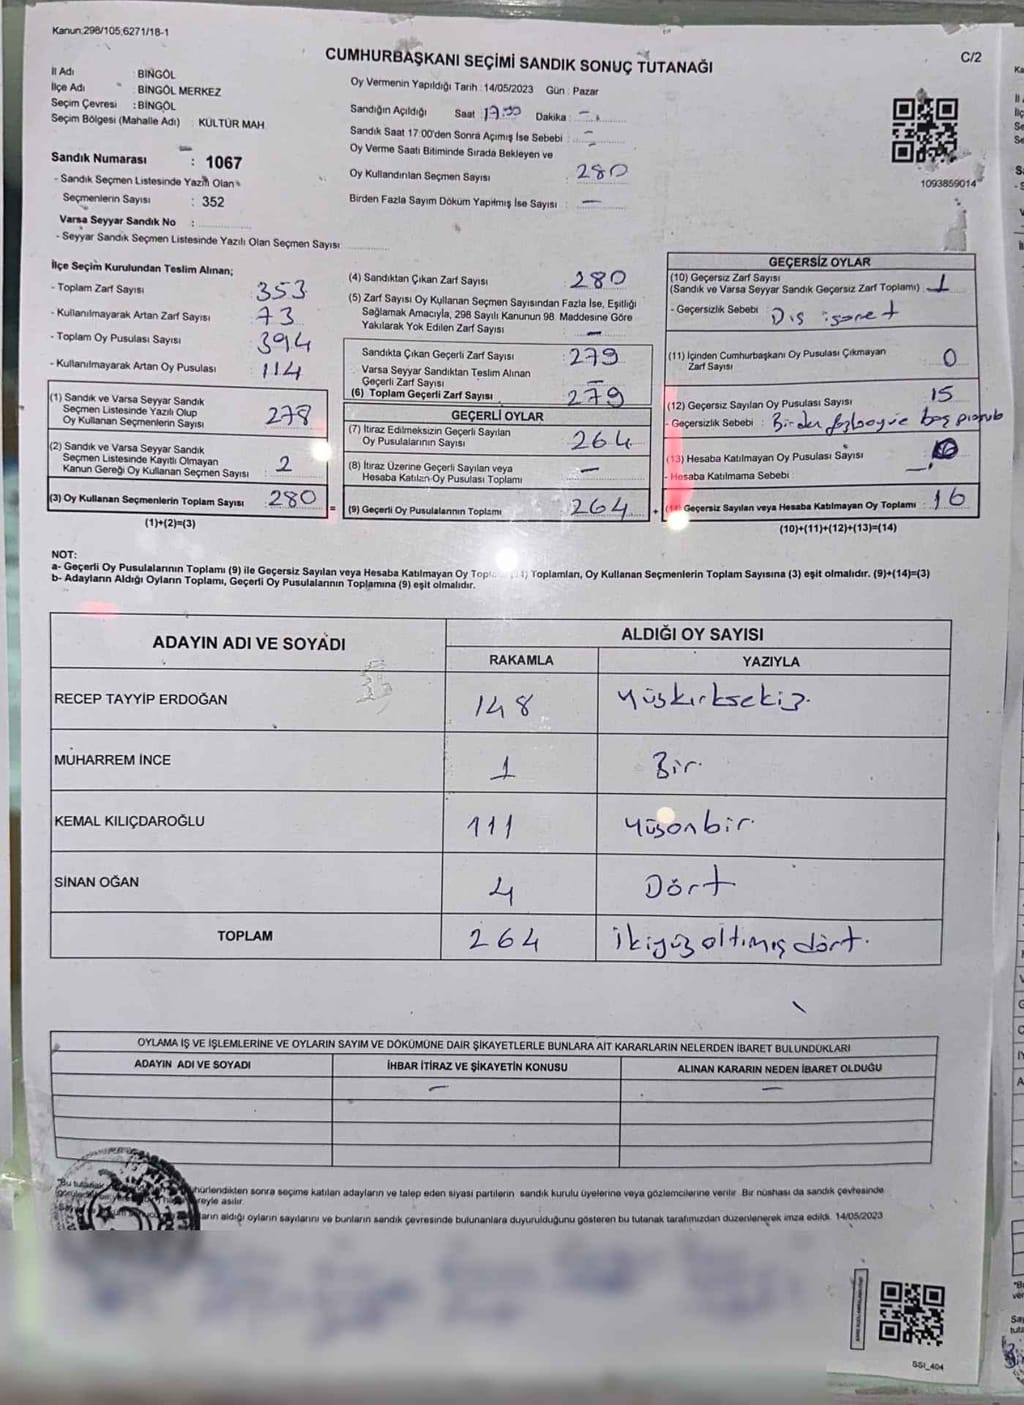 Kanun:298/105;6271/18-1
CUMHURBAŞKANI SEÇİMİ SANDIK SONUÇ TUTANAĞI
C/2
İl Adı : BİNGÖL
İlçe Adı : BİNGÖL MERKEZ
Seçim Çevresi : BİNGÖL
Seçim Bölgesi (Mahalle Adı) : KÜLTÜR MAH.
Sandık Numarası : 1067
- Sandık Seçmen Listesinde Yazılı Olan
Seçmenlerin Sayısı : 352
Varsa Seyyar Sandık No :
- Seyyar Sandık Seçmen Listesinde Yazılı Olan Seçmen Sayısı:
Oy Vermenin Yapıldığı Tarih : 14/05/2023 Gün : Pazar
Sandığın Açıldığı Saat : 17:00 Dakika : -
Sandık Saat 17:00'den Sonra Açımış İse Sebebi : -
Oy Verme Saati Bitiminde Sırada Bekleyen ve
Oy Kullandırılan Seçmen Sayısı : 280
Birden Fazla Sayım Döküm Yapılmış İse Sayısı : -
1093859014
İlçe Seçim Kurulundan Teslim Alınan;
- Toplam Zarf Sayısı 353
- Kullanılmayarak Artan Zarf Sayısı 73
- Toplam Oy Pusulası Sayısı 394
- Kullanılmayarak Artan Oy Pusulası 114
(1) Sandık ve Varsa Seyyar Sandık
Seçmen Listesinde Yazılı Olup
Oy Kullanan Seçmenlerin Sayısı 278
(2) Sandık ve Varsa Seyyar Sandık
Seçmen Listesinde Kayıtlı Olmayan
Kanun Gereği Oy Kullanan Seçmen Sayısı 2
(3) Oy Kullanan Seçmenlerin Toplam Sayısı 280
(1)+(2)=(3)
(4) Sandıktan Çıkan Zarf Sayısı 280
(5) Zarf Sayısı Oy Kullanan Seçmen Sayısından Fazla İse, Eşitliği
Sağlamak Amacıyla, 298 Sayılı Kanunun 98. Maddesine Göre
Yakılarak Yok Edilen Zarf Sayısı -
Sandıkta Çıkan Geçerli Zarf Sayısı 279
Varsa Seyyar Sandıktan Teslim Alınan
Geçerli Zarf Sayısı -
(6) Toplam Geçerli Zarf Sayısı 279
=
GEÇERLİ OYLAR
(7) İtiraz Edilmeksizin Geçerli Sayılan
Oy Pusulalarının Sayısı 264
(8) İtiraz Üzerine Geçerli Sayılan veya
Hesaba Katılan Oy Pusulası Toplamı -
(9) Geçerli Oy Pusulalarının Toplamı 264
+
GEÇERSİZ OYLAR
(10) Geçersiz Zarf Sayısı
(Sandık ve Varsa Seyyar Sandık Geçersiz Zarf Toplamı) 1
- Geçersizlik Sebebi : Dış işaret
(11) İçinden Cumhurbaşkanı Oy Pusulası Çıkmayan
Zarf Sayısı 0
(12) Geçersiz Sayılan Oy Pusulası Sayısı 15
- Geçersizlik Sebebi : Birden
(13) Hesaba Katılmayan Oy Pusulası Sayısı
- Hesaba Katılmama Sebebi : -
Geçersiz Sayılan veya Hesaba Katılmayan Oy Toplamı 16
(10)+(11)+(12)+(13)=(14)
NOT:
a- Geçerli Oy Pusulalarının Toplamı (9) ile Geçersiz Sayılan veya Hesaba Katılmayan Oy Toplamlan, Oy Kullanan Seçmenlerin Toplam Sayısına (3) eşit olmalıdır. (9)+(14)=(3)
b- Adayların Aldığı Oyların Toplamı, Geçerli Oy Pusulalarının Toplamına (9) eşit olmalıdır.
ADAYIN ADI VE SOYADI
ALDIĞI OY SAYISI
RAKAMLA YAZIYLA
RECEP TAYYİP ERDOĞAN 148 Yüzkırksekiz.
MUHARREM İNCE 1 Bir.
KEMAL KILIÇDAROĞLU 111 Yüzonbir.
SİNAN OĞAN 4 Dört
TOPLAM 264 İkiyüzaltmışdört.
OYLAMA İŞ VE İŞLEMLERİNE VE OYLARIN SAYIM VE DÖKÜMÜNE DAİR ŞİKAYETLERLE BUNLARA AİT KARARLARIN NELERDEN İBARET BULUNDUKLARI
ADAYIN ADI VE SOYADI İHBAR İTİRAZ VE ŞİKAYETİN KONUSU ALINAN KARARIN NEDEN İBARET OLDUĞU
- -
"Bu sonra seçime katılan adayların ve talep eden siyasi partilerin sandık kurulu üyelerine veya gözlemcilerine verilir. Bir nüshası da sandık çevresinde
asılır.
aldığı oyların sayılarını ve bunların sandık çevresinde bulunanlara duyurulduğunu gösteren bu tutanak tarafımızdan düzenlenerek imza edildi. 14/05/2023
SSI_404